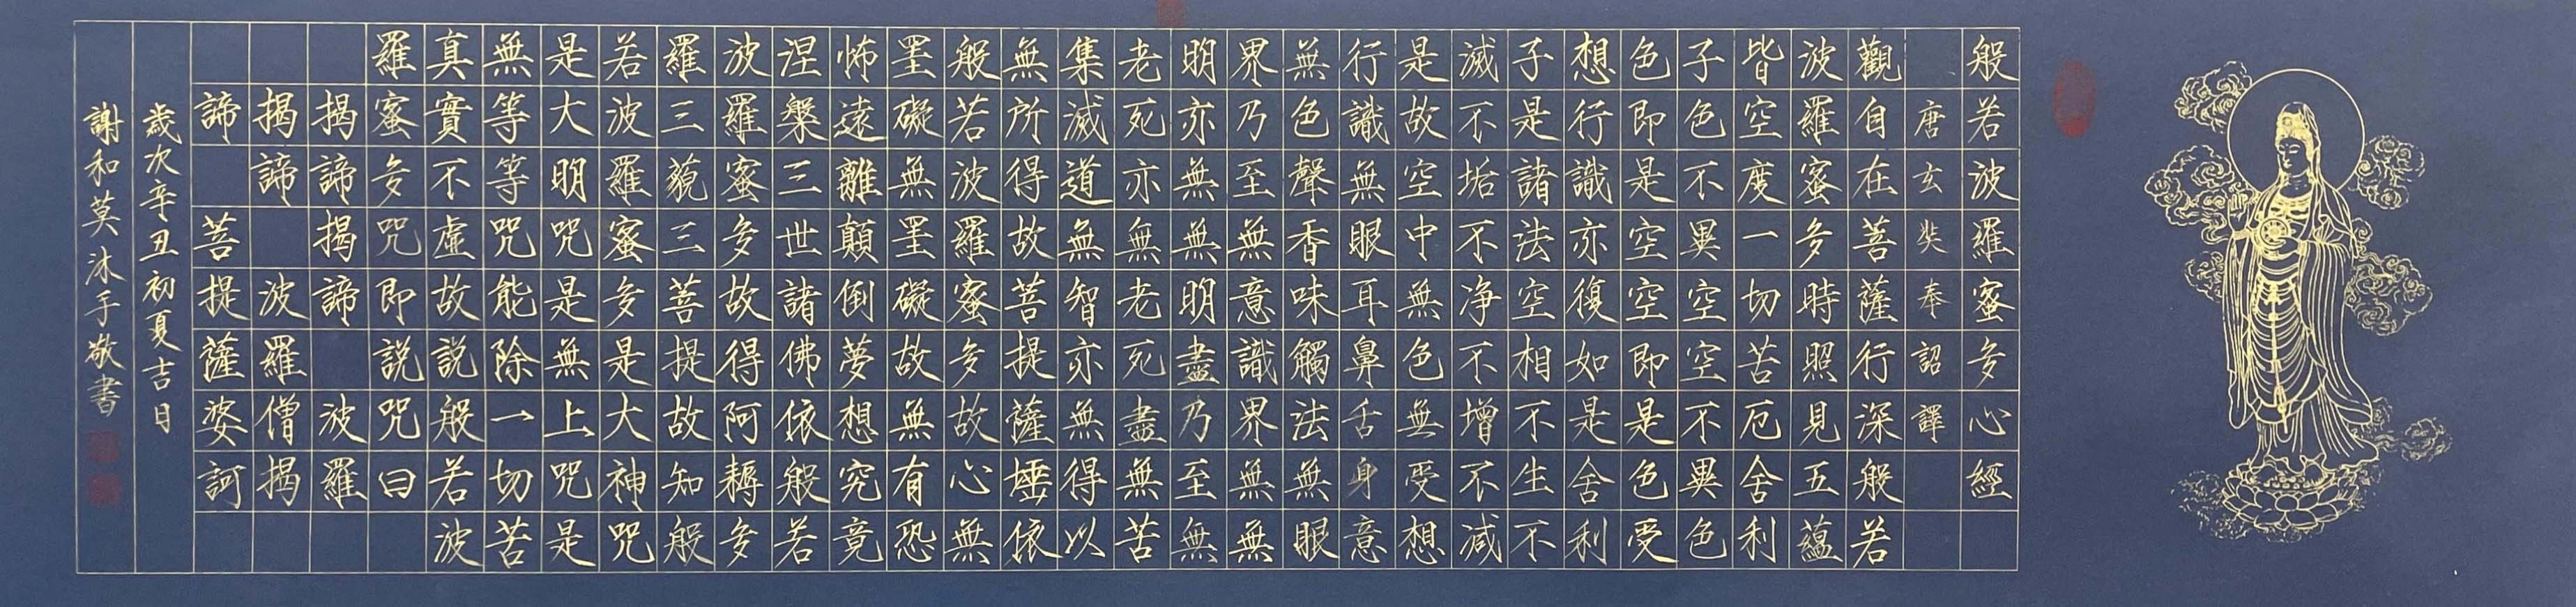 般若波羅蜜多心經
唐玄奘奉詔譯
觀自在菩薩行深般若
波羅蜜多時照見五蘊
皆空度一切苦厄舍利
子色不異空空不異色
色即是空空即是色受
想行識亦復如是舍利
子是諸法空相不生不
滅不垢不净不增不減
是故空中無色無受想
行識無眼耳鼻舌身意
無色聲香味觸法無眼
界乃至無意識界無無
明亦無無明盡乃至無
老死亦無老死盡無苦
集滅道無智亦無得以
無所得故菩提薩埵依
般若波羅蜜多故心無
罣礙無罣礙故無有恐
怖遠離顛倒夢想究竟
涅槃三世諸佛依般若
波羅蜜多故得阿耨多
羅三藐三菩提故知般
若波羅蜜多是大神咒
是大明咒是無上咒是
無等等咒能除一切苦
真實不虛故說般若波
羅蜜多咒即說咒曰
揭諦揭諦 波羅
揭諦 波羅僧揭
諦 菩提薩婆訶
歲次辛丑初夏吉日
謝和莫沐手敬書